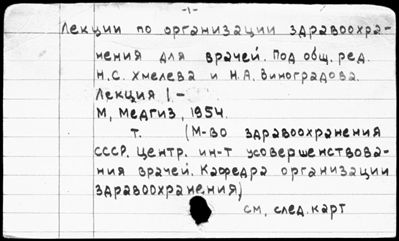 -1-
Лекции по организации здравоохра-
нения для врачей. Под общ. ред.
Н.С. Хмелева и Н.А. Виноградова.
Лекция 1.-
М, Медгиз, 1954.
т. (М-во здравоохранения
СССР. Центр. ин-т усовершенствова-
ния врачей. Кафедра организации
здравоохранения)
см, след.карт